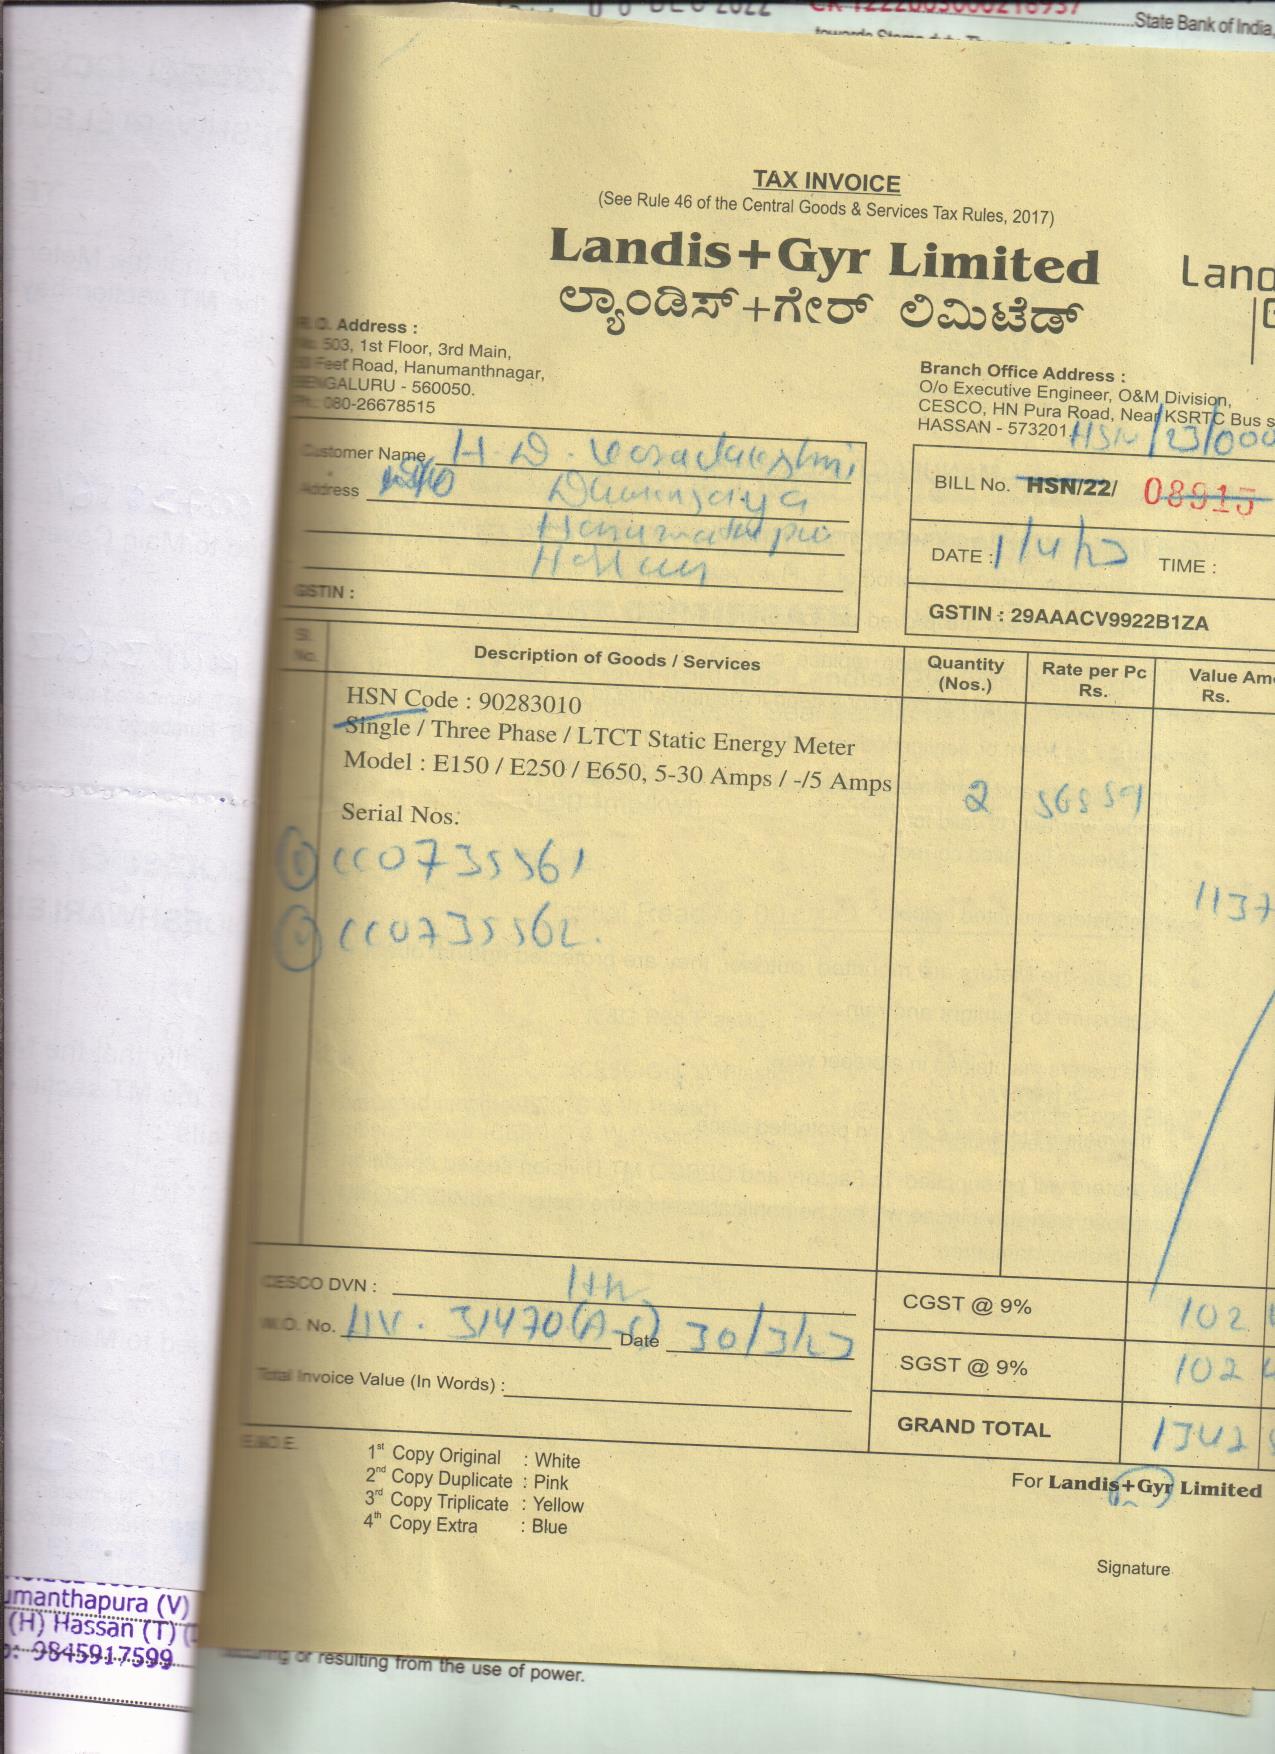 DEC 2022
State Bank of India,
TAX INVOICE
(See Rule 46 of the Central Goods & Services Tax Rules, 2017)
Landis+Gyr Limited
ಲ್ಯಾಂಡಿಸ್+ಗೇರ್ ಲಿಮಿಟೆಡ್
Land
R.O. Address :
No. 503, 1st Floor, 3rd Main,
Feet Road, Hanumanthnagar,
BENGALURU - 560050.
Ph.: 080-26678515
Branch Office Address :
O/o Executive Engineer, O&M Division,
CESCO, HN Pura Road, Near KSRTC Bus s
HASSAN - 573201
HSN/23/000
Customer Name H.D. Varadakshmi
Address
Dhananjaya
Hassan
GSTIN :
BILL No. HSN/22/ 08915
DATE : 1/4/23 TIME :
GSTIN : 29AAACV9922B1ZA
Sl. No. Description of Goods / Services Quantity (Nos.) Rate per Pc Rs. Value Am Rs.
HSN Code : 90283010
Single / Three Phase / LTCT Static Energy Meter
Model : E150 / E250 / E650, 5-30 Amps / -/5 Amps
2 568.59
Serial Nos:
CC0735561
1137
CC0735562.
CESCO DVN : Hsn
W.O. No. 31470 Date 30/3/23
Total Invoice Value (In Words) :
CGST @ 9% 102
SGST @ 9% 102
GRAND TOTAL 1342
E.&O.E.
1st Copy Original : White
2nd Copy Duplicate : Pink
3rd Copy Triplicate : Yellow
4th Copy Extra : Blue
For Landis+Gyr Limited
Signature
umanthapura (V)
(H) Hassan (T)
9845917599
or resulting from the use of power.